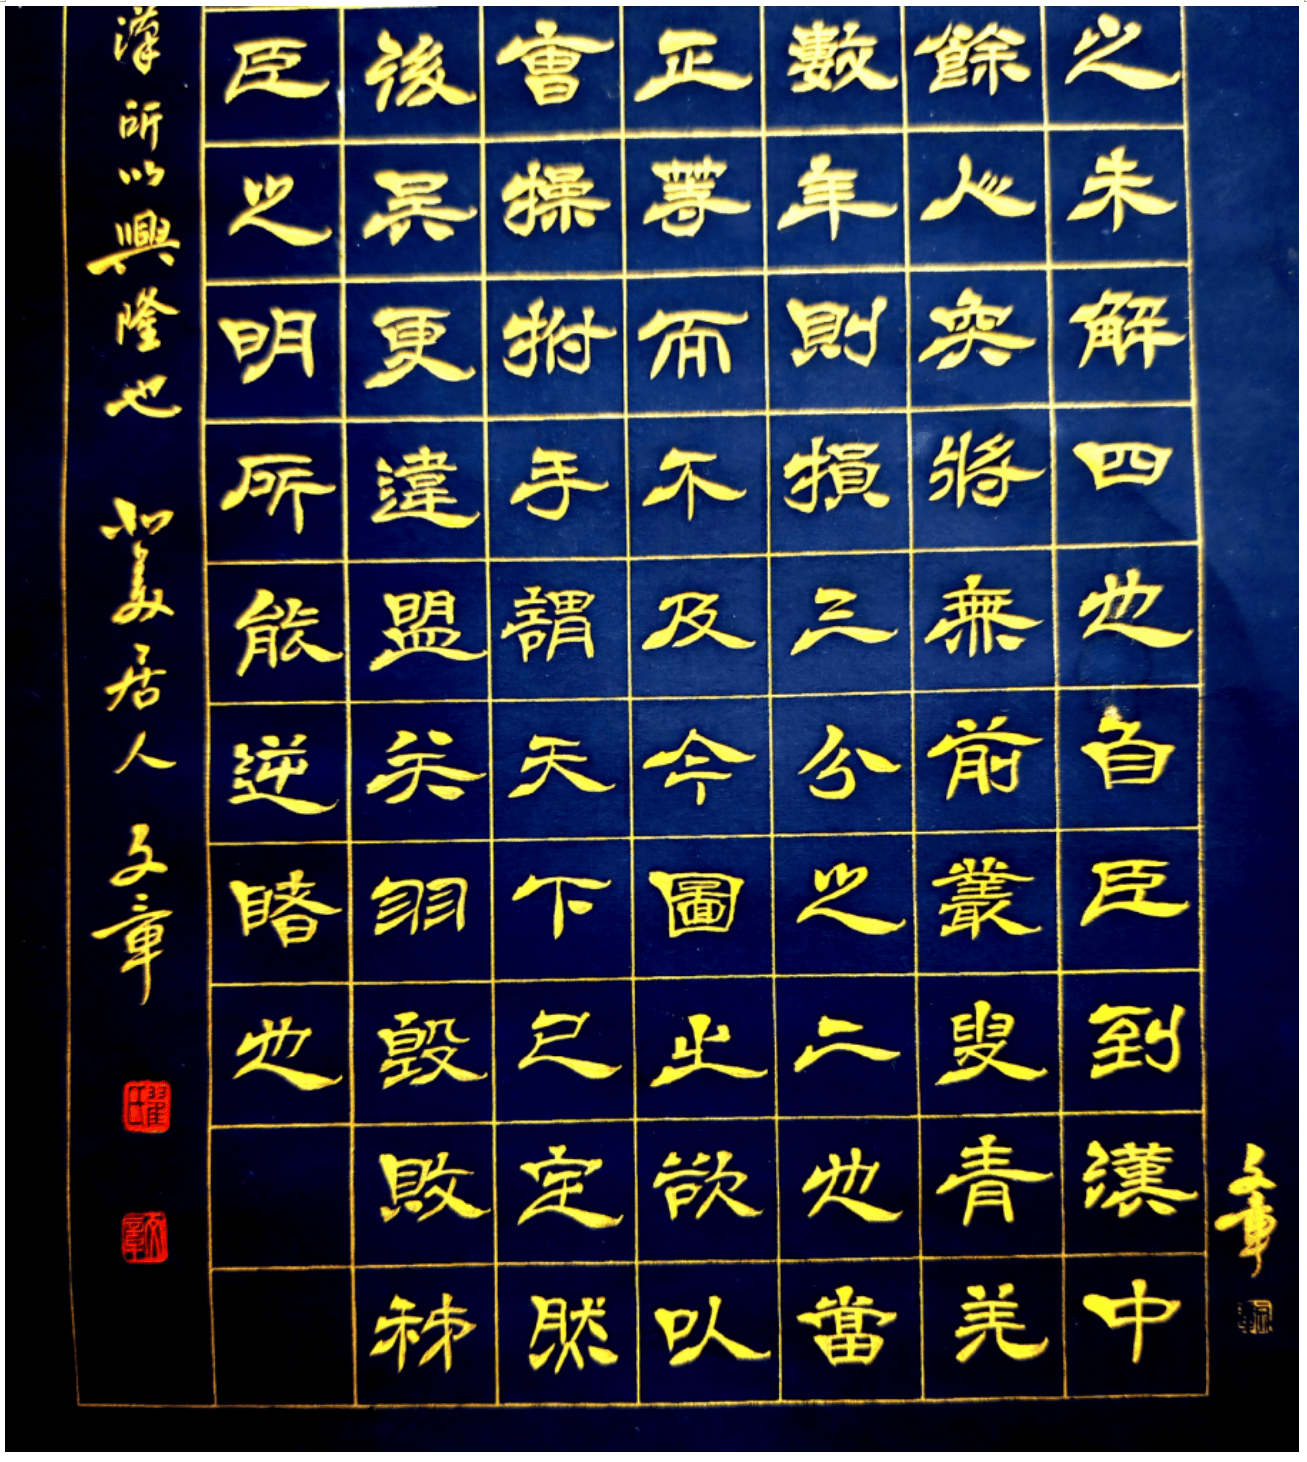 文章
之未解四也自臣到漢中
餘人突將無前叢叟青羌
數年則損三分之二也當
正等而不及今圖止欲以
會操拊手謂天下已定然
後吳更違盟关羽毀敗秭
臣之明所能逆睹也
漢所以興隆也 美居人 文章
文章